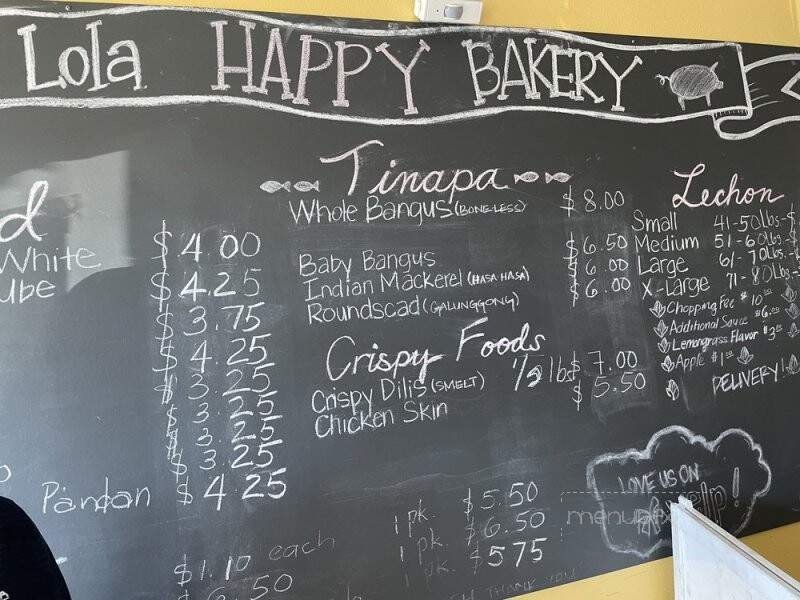 Lola HAPPY BAKERY
d
White $4.00
ube $4.25
$3.75
$4.25
$3.25
$3.25
$3.25
$3.25
Pandan $4.25
$1.10 each
.50
Tinapa
Whole Bangus (BONELESS) $8.00
Baby Bangus $6.50
Indian Mackerel (HASA HASA) $6.00
Roundscad (GALUNGGONG) $6.00
Crispy Foods
Crispy Dilis (SMELT) 1/2 lb $7.00
Chicken Skin $5.50
1 pk. $5.50
1 pk. $6.50
1 pk. $5.75
THANK YOU
Lechon
Small 41-50lbs-$
Medium 51-60lbs-$
Large 61-70lbs.-
X-Large 71-80lbs-
Chopping Fee $10.00
Additional Sauce $6.00
Lemongrass Flavor $3.00
Apple $1.00
DELIVERY!
LOVE US ON
yelp!